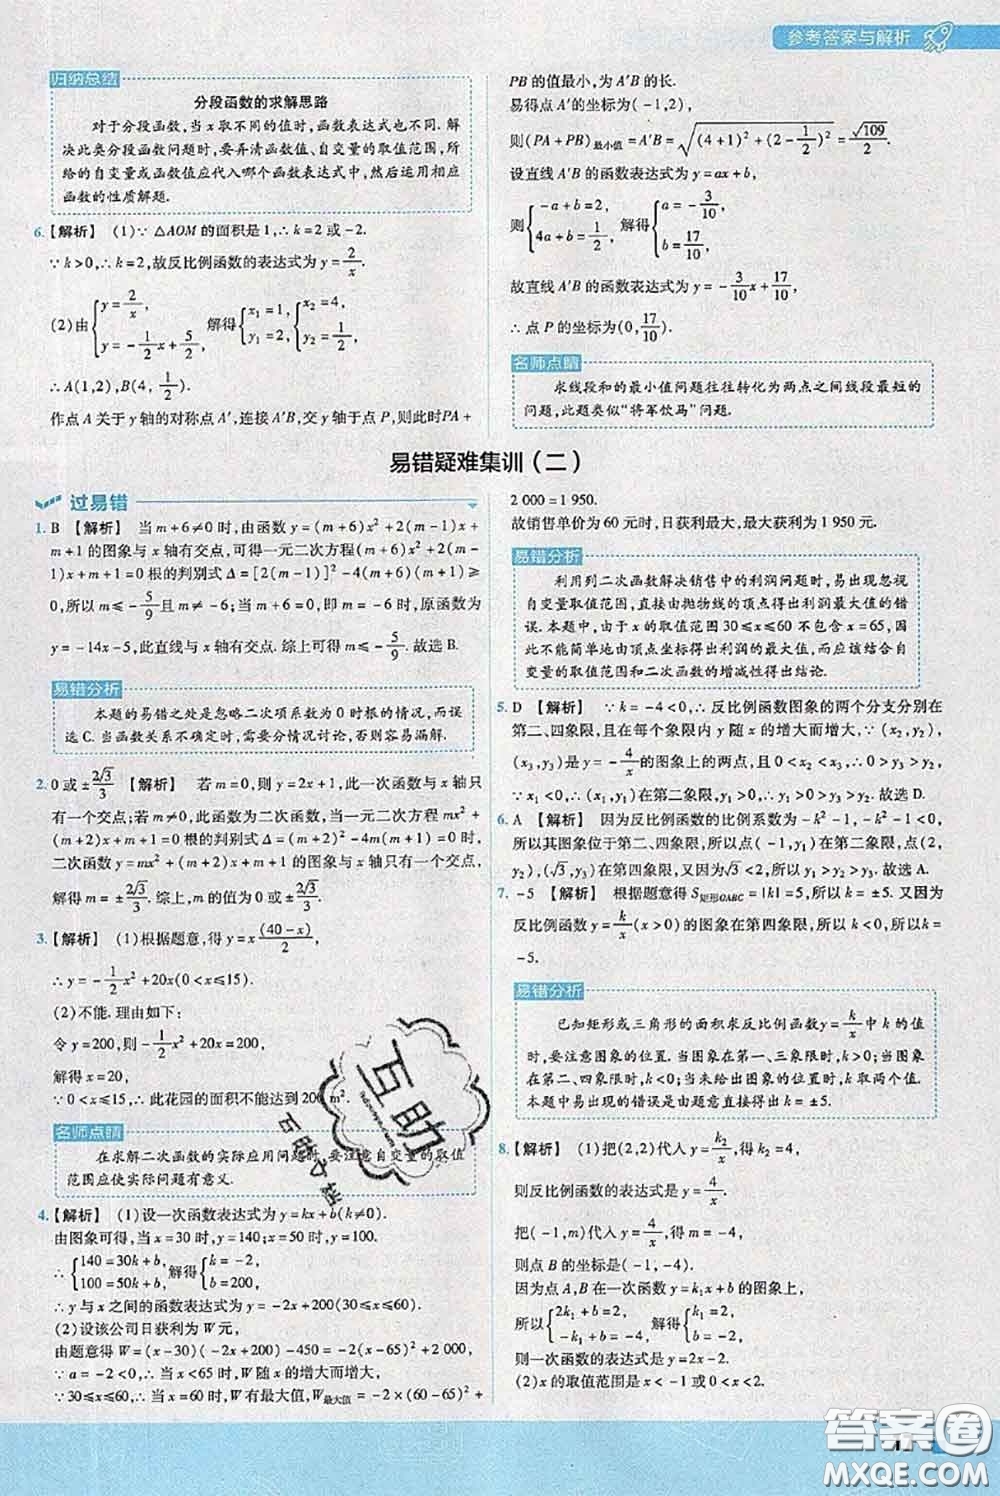 参考答案与解析
归纳总结
分段函数的求解思路
对于分段函数,当 x 取不同的值时,函数表达式也不同. 解
决此类分段函数问题时,要弄清函数值、自变量的取值范围,所
给的自变量或函数值应代入哪个函数表达式中,然后运用相应
函数的性质解题.
6.【解析】 (1)∵ △AOM 的面积是 1,∴ k=2 或 -2.
∵ k>0,∴ k=2,故反比例函数的表达式为 y=2/x.
(2)由{y=2/x, y=-1/2x+5/2, 解得{x₁=1, y₁=2, {x₂=4, y₂=1/2,
∴ A(1,2),B(4, 1/2).
作点 A 关于 y 轴的对称点 A′,连接 A′B,交 y 轴于点 P,则此时PA+
PB 的值最小,为 A′B 的长.
易得点 A′的坐标为(-1,2),
则(PA+PB)最小值=A′B=√((4+1)²+(2-1/2)²)=√109/2.
设直线 A′B 的函数表达式为 y=ax+b,
则{-a+b=2, 4a+b=1/2, 解得{a=-3/10, b=17/10,
故直线 A′B 的函数表达式为 y=-3/10x+17/10,
∴ 点 P 的坐标为(0,17/10).
名师点睛
求线段和的最小值问题往往转化为两点之间线段最短的
问题,此题类似“将军饮马”问题.
易错疑难集训(二)
过易错
1. B 【解析】 当 m+6≠0 时,由函数 y=(m+6)x²+2(m-1)x+
m+1 的图象与 x 轴有交点,可得一元二次方程(m+6)x²+2(m-
1)x+m+1=0 根的判别式 Δ=[2(m-1)]²-4(m+6)(m+1)≥
0,所以 m≤-5/9且 m≠-6;当 m+6=0,即 m=-6 时,原函数为
y=-14x-5,此直线与 x 轴有交点. 综上可得 m≤-5/9. 故选 B.
易错分析
本题的易错之处是忽略二次项系数为 0 时根的情况,而误
选 C. 当函数关系不确定时,需要分情况讨论,否则易漏解.
2. 0 或 ±2√3/3 【解析】 若 m=0,则 y=2x+1,此一次函数与 x 轴只
有一个交点;若 m≠0,此函数为二次函数,当一元二次方程 mx²+
(m+2)x+m+1=0 根的判别式 Δ=(m+2)²-4m(m+1)=0 时,
二次函数 y=mx²+(m+2)x+m+1 的图象与 x 轴只有一个交点,
解得 m=±2√3/3. 综上,m 的值为 0 或 ±2√3/3.
3.【解析】 (1)根据题意,得 y=x(40-x)/2,
∴ y=-1/2x²+20x(0<x≤15).
(2)不能. 理由如下:
令 y=200,则-1/2x²+20x=200,
解得 x=20,
∵ 0<x≤15,∴ 此花园的面积不能达到 200 m².
名师点睛
在求解二次函数的实际应用问题时,要注意自变量的取值
范围应使实际问题有意义.
4.【解析】 (1)设一次函数表达式为 y=kx+b(k≠0).
由图象可得,当 x=30 时,y=140;x=50 时,y=100.
∴{140=30k+b, 100=50k+b, 解得{k=-2, b=200,
∴ y 与 x 之间的函数表达式为 y=-2x+200(30≤x≤60).
(2)设该公司日获利为 W 元,
由题意得 W=(x-30)(-2x+200)-450=-2(x-65)²+2 000.
∵ a=-2<0,∴ 当 x<65 时,W 随 x 的增大而增大.
∵ 30≤x≤60,∴ 当 x=60 时,W 有最大值,W最大值=-2×(60-65)²+
2 000=1 950.
故销售单价为 60 元时,日获利最大,最大获利为 1 950 元.
易错分析
利用到二次函数解决销售中的利润问题时,易出现忽视
自变量取值范围,直接由抛物线的顶点得出利润最大值的错
误. 本题中,由于 x 的取值范围 30≤x≤60 不包含 x=65,因
此不能简单地由顶点坐标得出利润的最大值,而应该结合自
变量的取值范围和二次函数的增减性得出结论.
5. D 【解析】 ∵ k=-4<0,∴ 反比例函数图象的两个分支分别在
第二、四象限,且在每个象限内 y 随 x 的增大而增大. ∵ (x₂,y₂),
(x₃,y₃)是 y=-4/x的图象上的两点,且 0<x₂<x₃,∴ y₂<y₃<0.
∵ x₁<0,∴ (x₁,y₁)在第二象限,y₁>0,∴ y₂<y₃<y₁. 故选 D.
6. A 【解析】 因为反比例函数的比例系数为-k²-1,-k²-1<0,
所以其图象位于第二、四象限,所以点(-1,y₁)在第二象限,点(2,
y₂),(√3,y₃)在第四象限,又因为√3<2,所以 y₁>y₂>y₃. 故选 A.
7. -5 【解析】 根据题意得 S矩形OABC=|k|=5,所以 k=±5. 又因为
反比例函数 y=k/x(x>0)的图象在第四象限,所以 k<0,所以k=-5.
易错分析
已知矩形或三角形的面积求反比例函数y=k/x中 k 的值
时,要注意图象的位置. 当图象在第一、三象限时,k>0;当图象
在第二、四象限时,k<0;当未给出图象的位置时,k 取两个值.
本题中易出现的错误是由题意直接得出 k=±5.
8.【解析】 (1)把(2,2)代入 y=k₂/x,得 k₂=4,
则反比例函数的表达式是 y=4/x.
把(-1,m)代入 y=4/x,得 m=-4,
则点 B 的坐标是(-1,-4).
因为点 A,B 在一次函数 y=k₁x+b 的图象上,
所以{2k₁+b=2, -k₁+b=-4, 解得{k₁=2, b=-2,
则一次函数的表达式为 y=2x-2.
(2)x 的取值范围是 x<-1 或 0<x<2.
互助
答案圈
MXQE.COM